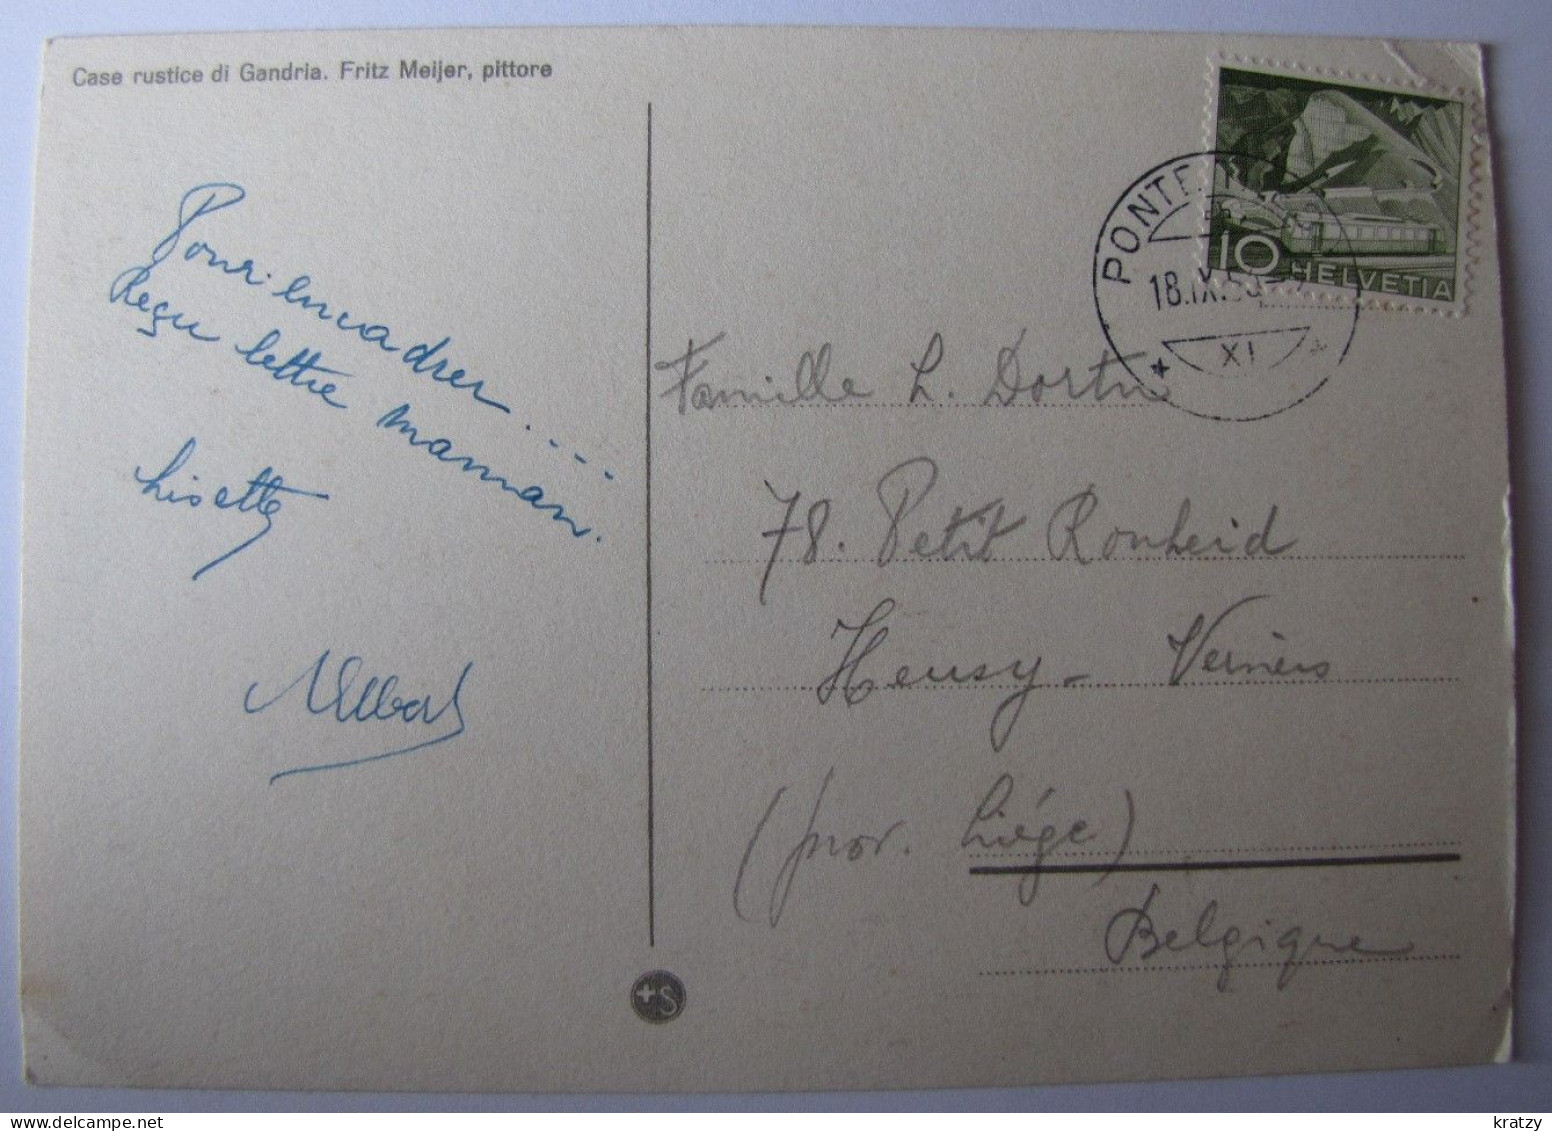 Case rustice di Gandria. Fritz Meijer, pittore
Pour encadrer....
Reçu lettre maman.
Lisette
Albert
PONTE
18.IX.53
XI
10 HELVETIA
Famille L. Dortu
78. Petit Ronheid
Heusy - Verviers
(prov. Liége)
Belgique
+S
www.delcampe.net
kratzy